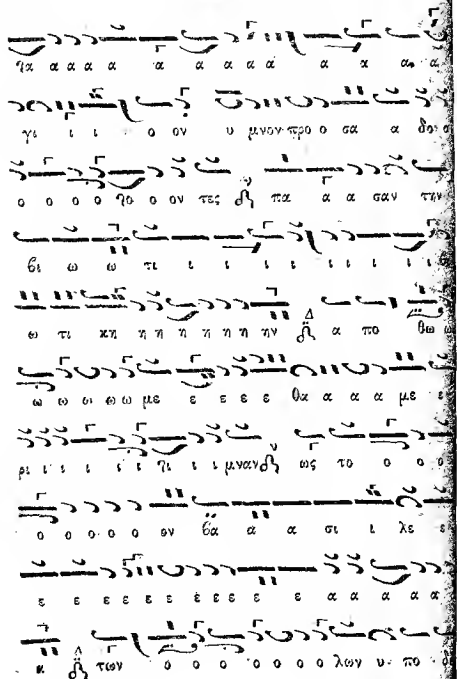 χα α α α α α α α α α α α α α
γι ι ι ο ον υ μνον προ ο σα α δο ο
ο ο ο ο χο ο ον τες πα α α σαν την
βι ω ω τι ι ι ι ι ι ι ι ι
ω τι κη η η η η η ην α πο θω ω
ω ω ω ω ω με ε ε ε ε θα α α α με ε
ρι ι ι ι ι ι χι ι ι μναν ως το ο ο ο
ο ο ο ο ο ον βα α α α σι ι λε ε
ε ε ε ε ε ε ε ε ε ε ε α α α α α
α των ο ο ο ο ο ο ο λων υ πο ο